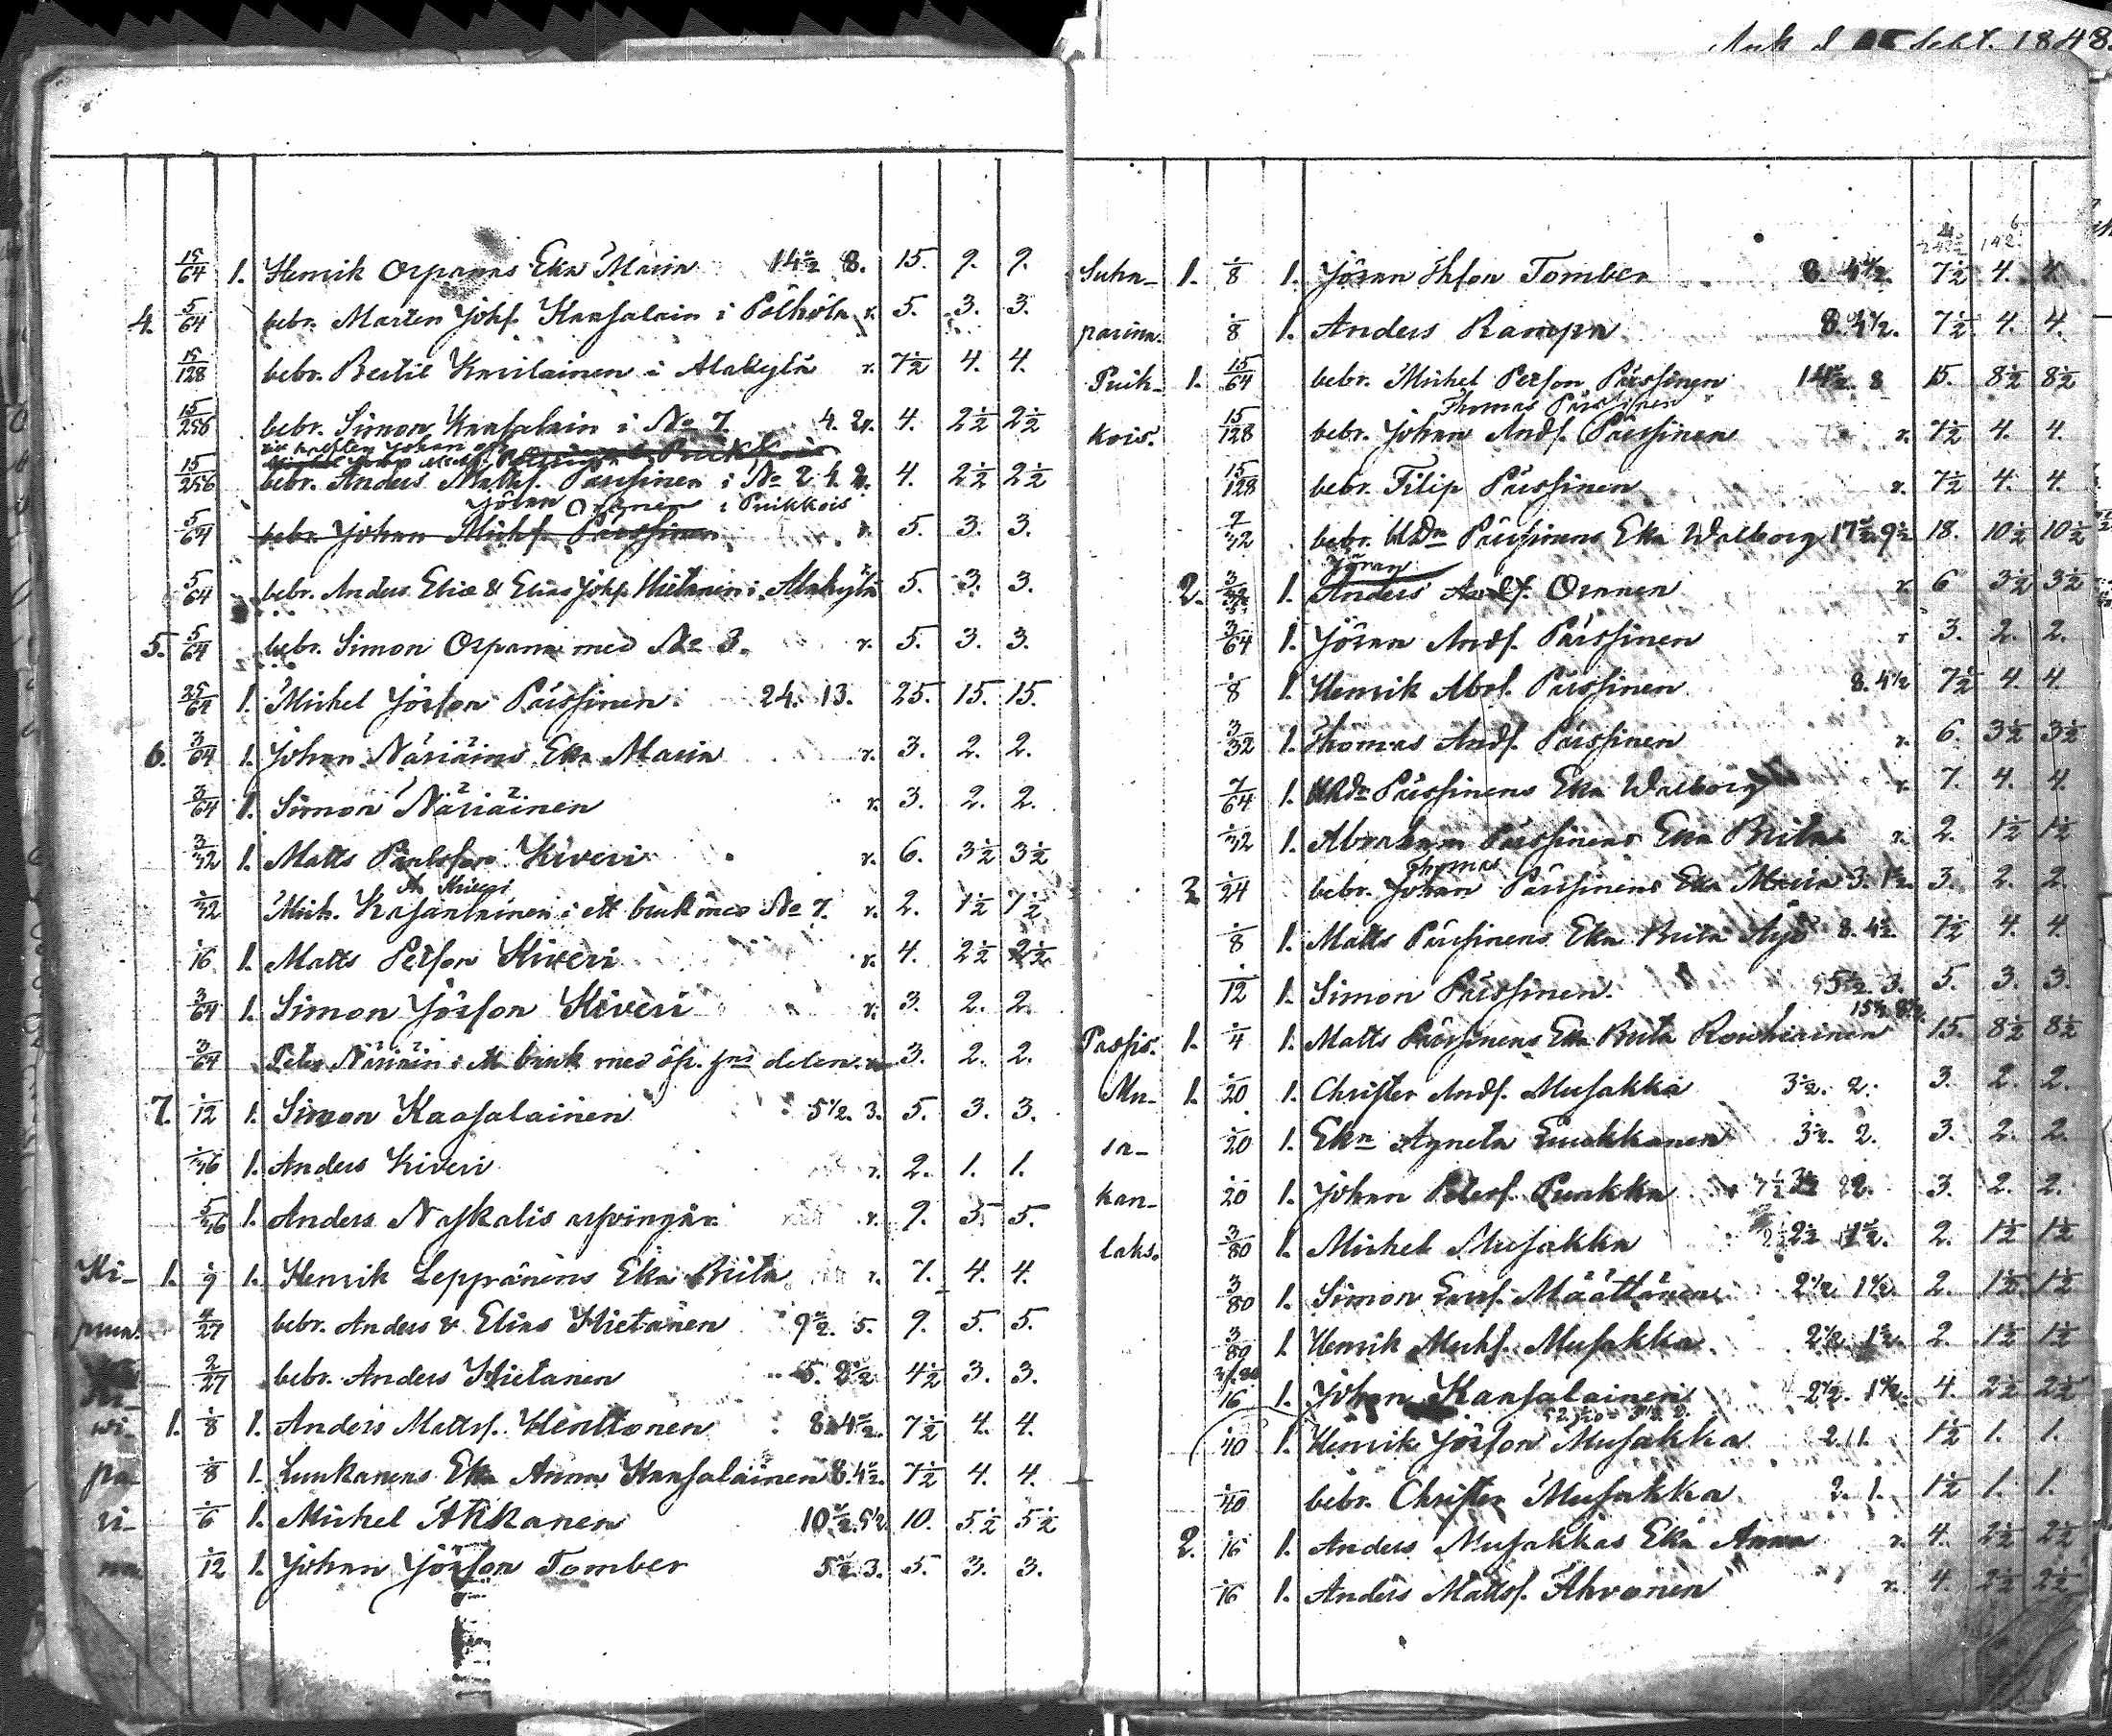 15/64 1. Henrik Orpanas Eka Maria 14½ 8. 15. 9. 9.
4. 5/64 bebr. Marten Johs. Kaasalain i Pölhölä r. 5. 3. 3.
15/128 bebr. Bertil Karilainen i Alakylä r. 7½ 4. 4.
15/256 bebr. Simon Kaasalain i No 7. 4. 2 r. 4. 2½ 2½
Johan
15/256 bebr. Anders Matts. Pärssinen i No 2 4. 2. 4. 2½ 2½
Jöran Ornnen i Puikkois
5/64 bebr Johan Michs. Pärssinen r. 5. 3. 3.
5/64 bebr. Anders Elias & Elias Johs. Hietanen i Alakylä 5. 3. 3.
5. 5/64 bebr. Simon Orpana med No 3. r. 5. 3. 3.
25/64 1. Michel Jörson Pärssinen 24. 13. 25. 15. 15.
6. 3/64 1. Johan Näriäins Eka Maria r. 3. 2. 2.
3/64 1. Simon Näriäinen r. 3. 2. 2.
3/32 1. Matts Pärlsson Kiveri r. 6. 3½ 3½
Kiveri
1/32 Mich. Kasanlainen i ett bruk med No 7. r. 2. 1½ 1½
1/16 1. Matts Person Kiveri r. 4. 2½ 2½
3/64 1. Simon Jörson Kiveri r. 3. 2. 2.
3/64 Peter Näriäin i ett bruk med delen. 3. 2. 2.
7. 1/12 1. Simon Kaasalainen 5½. 3. 5. 3. 3.
1/36 1. Anders Kiveri r. 2. 1. 1.
5/36 1. Anders Naskalis arfvingar r. 9. 5 5.
Ki- 1. 1/9 1. Henrik Leppänens Eka Brita r. 7. 4. 4.
4/27 bebr. Anders & Elias Hietanen 9½. 5. 9. 5. 5.
2/27 bebr. Anders Hietanen 5. 2½ 4½ 3. 3.
wi- 1. 1/8 1. Anders Mattss. Henttonen 8. 4½. 7½ 4. 4.
pa- 1/8 1. Luukanens Eka Anna Kaasalainen 8. 4½. 7½ 4. 4.
ri- 1/6 1. Michel Akkanen 10½. 5½ 10. 5½ 5½
1/12 1. Johan Jörson Tomber 5½. 3. 5. 3. 3.
Ank d Sept. 1848.
Suhn- 1. 1/8 1. Jöran Thson Tomber 8. 4½. 7½ 4. 4.
parina. 1/8 1. Anders Rampa 8. 4½. 7½ 4. 4.
Puik- 1. 15/64 bebr. Michel Person Pärssinen 14½. 8 15. 8½ 8½
Thomas Pärssinen
kois. 15/128 bebr. Johan Ands. Pärssinen r. 7½ 4. 4.
15/128 bebr. Filip Pärssinen r. 7½ 4. 4.
9/32 bebr. Pärssinens Eka Walborg 17½ 9½ 18. 10½ 10½
Jöran
2. 3/32 1. Anders Ands. Ornnen r. 6 3½ 3½
3/64 1. Jöran Ands. Pärssinen r 3. 2. 2.
1/8 1. Henrik Abrs. Pärssinen 8. 4½ 7½ 4 4.
3/32 1. Thomas Ands. Pärssinen r. 6. 3½ 3½
7/64 1. Pärssinens Eka Walborg r. 7. 4. 4.
1/32 1. Abraham Pärssinens Eka Brita r. 2. 1½ 1½
Thomas
3 1/24 bebr. Johan Pärssinens Eka Maria 3. 1½. 3. 2. 2.
1/8 1. Matts Pärssinens Eka Brita Äyö 8. 4½. 7½ 4. 4.
1/12 1. Simon Pärssinen. 5½. 3. 5. 3. 3.
15½ 8½
Passis. 1. 1/4 1. Matts Pärssinens Eka Brita Rouhiainen 15. 8½ 8½
Mu- 1. 1/20 1. Christer Ands. Musakka 3½. 2. 3. 2. 2.
sa- 1/20 1. Ekn Agneta Luukkanen 3½. 2. 3. 2. 2.
kan- 1/20 1. Johan Peters. Punkka 3½ 2. 3. 2. 2.
laks. 3/80 1. Michel Musakka 2½ 1½. 2. 1½ 1½
3/80 1. Simon Larss. Määttänen 2½ 1½. 2. 1½ 1½
3/80 1 Henrik Michs. Musakka 2½. 1½. 2. 1½ 1½
1/16 1. Johan Kaasalainen 2½. 1½. 4. 2½ 2½
1/40 1. Henrik Jörson Musakka 2. 1. 1½ 1. 1.
1/40 bebr. Christer Musakka 2. 1. 1½ 1. 1.
2. 1/16 1. Anders Musakkas Eka Anna r. 4. 2½ 2½
1/16 1. Anders Mattss. Ahvonen r. 4. 2½ 2½